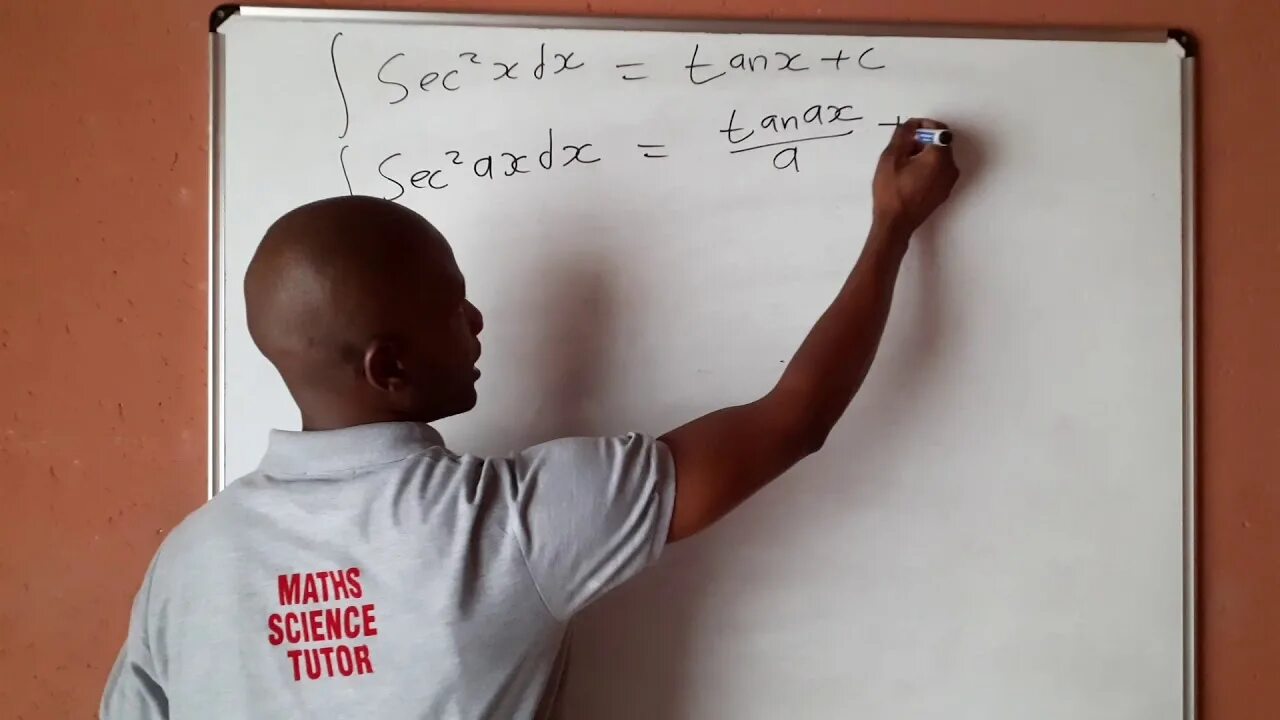 ∫ Sec²x dx = tanx + c
∫ Sec²ax dx = tanax/a +
MATHS
SCIENCE
TUTOR